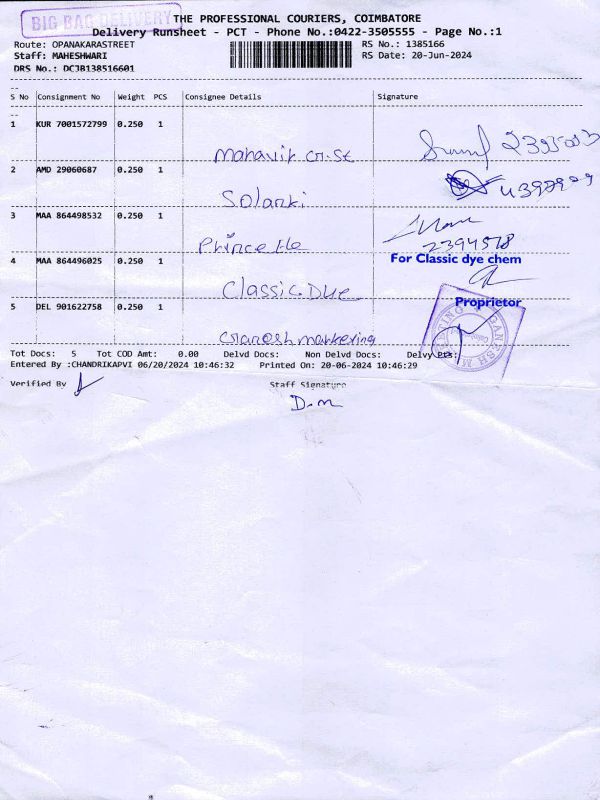 BIG BAG DELIVERY
THE PROFESSIONAL COURIERS, COIMBATORE
Delivery Runsheet - PCT - Phone No.:0422-3505555 - Page No.:1
Route: OPANAKARASTREET
RS No.: 1385166
Staff: MAHESHWARI
RS Date: 20-Jun-2024
DRS No.: DCJB138516601
S No Consignment No Weight PCS Consignee Details Signature
1 KUR 7001572799 0.250 1
Mahavir
2 AMD 29060687 0.250 1
Solanki
3 MAA 864498532 0.250 1
Prince
2394578
4 MAA 864496025 0.250 1
For Classic dye chem
Classic Dye
Proprietor
5 DEL 901622758 0.250 1
Ganesh marketing
GANESH
Tot Docs: 5 Tot COD Amt: 0.00 Delvd Docs: Non Delvd Docs: Delvy Pts:
Entered By :CHANDRIKAPVI 06/20/2024 10:46:32 Printed On: 20-06-2024 10:46:29
Verified By Staff Signature
D.m